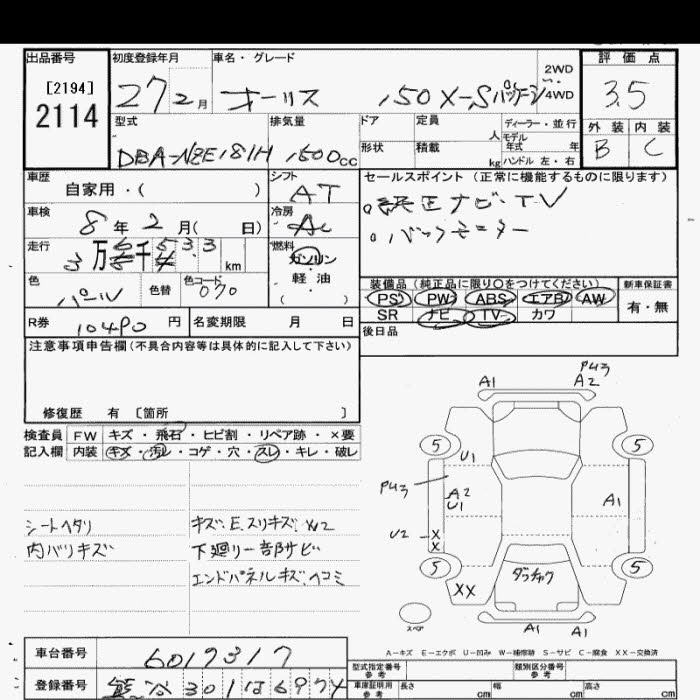 出品番号
[2194]
2114
初度登録年月
27 2月
車名・グレード
オーリス 150X-Sパッケージ
2WD
4WD
評価点
3.5
外装 内装
B C
型式
DBA-NZE181H
排気量
1500cc
ドア
定員
人
ディーラー・並行
モデル年式 年
形状
積載
kg
ハンドル 左・右
車歴
自家用・( )
シフト
AT
車検
8年2月( 日)
冷房
AC
走行
km
燃料
ガソリン
軽油
( )
色
パール
色替
色コード
070
R券
10490円
名変期限 月 日
セールスポイント (正常に機能するものに限ります)
。純正ナビ・TV
。バックモニター
装備品 (純正品に限り○をつけてください)
PS PW ABS エアB AW
SR ナビ TV カワ
新車保証書
有・無
後日品
注意事項申告欄 (不具合内容等は具体的に記入して下さい)
修復歴 有 〔箇所 〕
検査員 FW キズ・飛石・ヒビ割・リペア跡・×要
記入欄 内装 キズ・汚レ・コゲ・穴・スレ・キレ・破レ
シートヘタリ
内バリキズ
キズ、E、スリキズ、W2
下廻り一部サビ
エンドパネルキズ、ヘコミ
A1
PU3
A2
5
5
U1
PU3
A2
U1
A1
U2
X
X
5
5
XX
ダンチャク
スペア
A1
A1
A-キズ E-エクボ U-凹み W-補修跡 S-サビ C-腐食 XX-交換済
車台番号
6019317
登録番号
301は6974
型式指定番号
参考
類別区分番号
参考
車庫証明用
参考
長さ cm
幅 cm
高さ cm